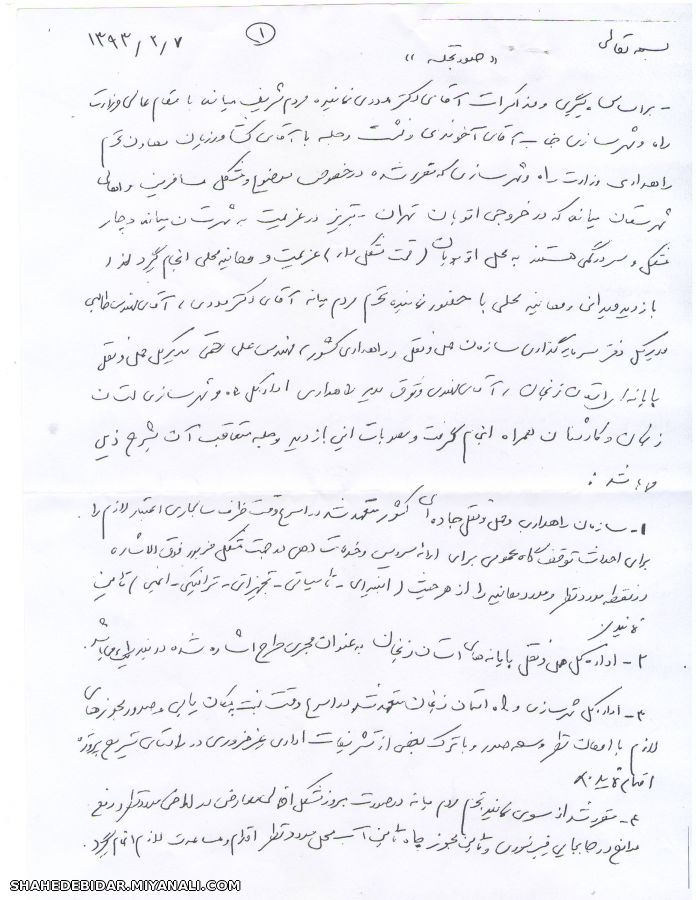 بسمه تعالی
۱
۱۳۹۳/۲/۷
« صورتجلسه »
- براساس پیگیری و مذاکرات آقای دکتر مددی نماینده مردم شریف میانه با مقام عالی وزارت
راه و شهرسازی جناب آقای آخوندی و نشست و جلسه با آقای کشاورزیان معاون محترم
راهداری وزارت راه و شهرسازی که مقرر شده درخصوص موضوع و مشکل مسافرین و اهالی
شهرستان میانه که در خروجی اتوبان تهران - تبریز در عزیمت به شهرستان میانه دچار
مشکل و سردرگمی هستند به محل اتوبان ( قسمت مشکل دار ) عزیمت و معاینه محلی انجام گیرد لذا
بازدید میدانی و معاینه محلی با حضور نماینده محترم مردم میانه آقای دکتر مددی ، آقای مهندس طالبی
مدیرکل دفتر سرمایه گذاری سازمان حمل و نقل و راهداری کشور ، مهندس علی مدیرکل حمل و نقل
پایانه‌ها استان زنجان ، آقای مهندس وثوق مدیر راهداری اداره کل راه و شهرسازی استان
زنجان و کارشناسان همراه انجام گرفت و مصوبات این بازدید و جلسه متعاقب آن بشرح ذیل
می باشد :
۱- سازمان راهداری و حمل و نقل جاده‌ای کشور متعهد شد در اسرع وقت ظرف سالجاری اعتبار لازم را
برای احداث توقف گاه عمومی برای ارائه سرویس و خدمات دهی در جهت مشکل مزبور فوق الاشاره
در نقطه مورد نظر و مورد معاینه را از هر حیث ( ابنیه‌ای - تاسیساتی - تجهیزاتی - ترافیکی - ایمنی ) تامین
نمایند.
۲- اداره کل حمل و نقل پایانه‌های استان زنجان به عنوان مجری طرح اشاره شده در بند یک می‌باشد.
۳- اداره کل شهرسازی و راه استان زنجان متعهد شد در اسرع وقت نسبت به مکان یابی و صدور مجوزهای
لازم با امعان نظر وسعه صدر و با ترک بعضی از تشریفات اداری و غیرضروری در راستای تسریع پروژه
اقدام نمایند.
۴- مقرر شد از سوی نماینده محترم مردم میانه در صورت بروز مشکل احتمالی معارض در اراضی مورد نظر و رفع
موانع در جابجایی فیبر نوری و تامین مجوز چاه تامین آب محل مورد نظر اقدام و مساعدت لازم انجام گیرد.
SHAHEDEBIDAR.MIYANALI.COM